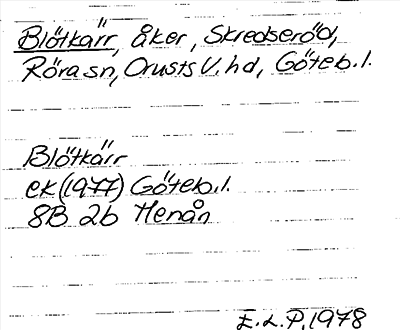 Blötkärr, åker, Skredseröd,
Röra sn, Orusts V. hd, Göteb. l.
Blötkärr
ek (1977) Göteb. l.
8B 2b Henån
E. L. P. 1978